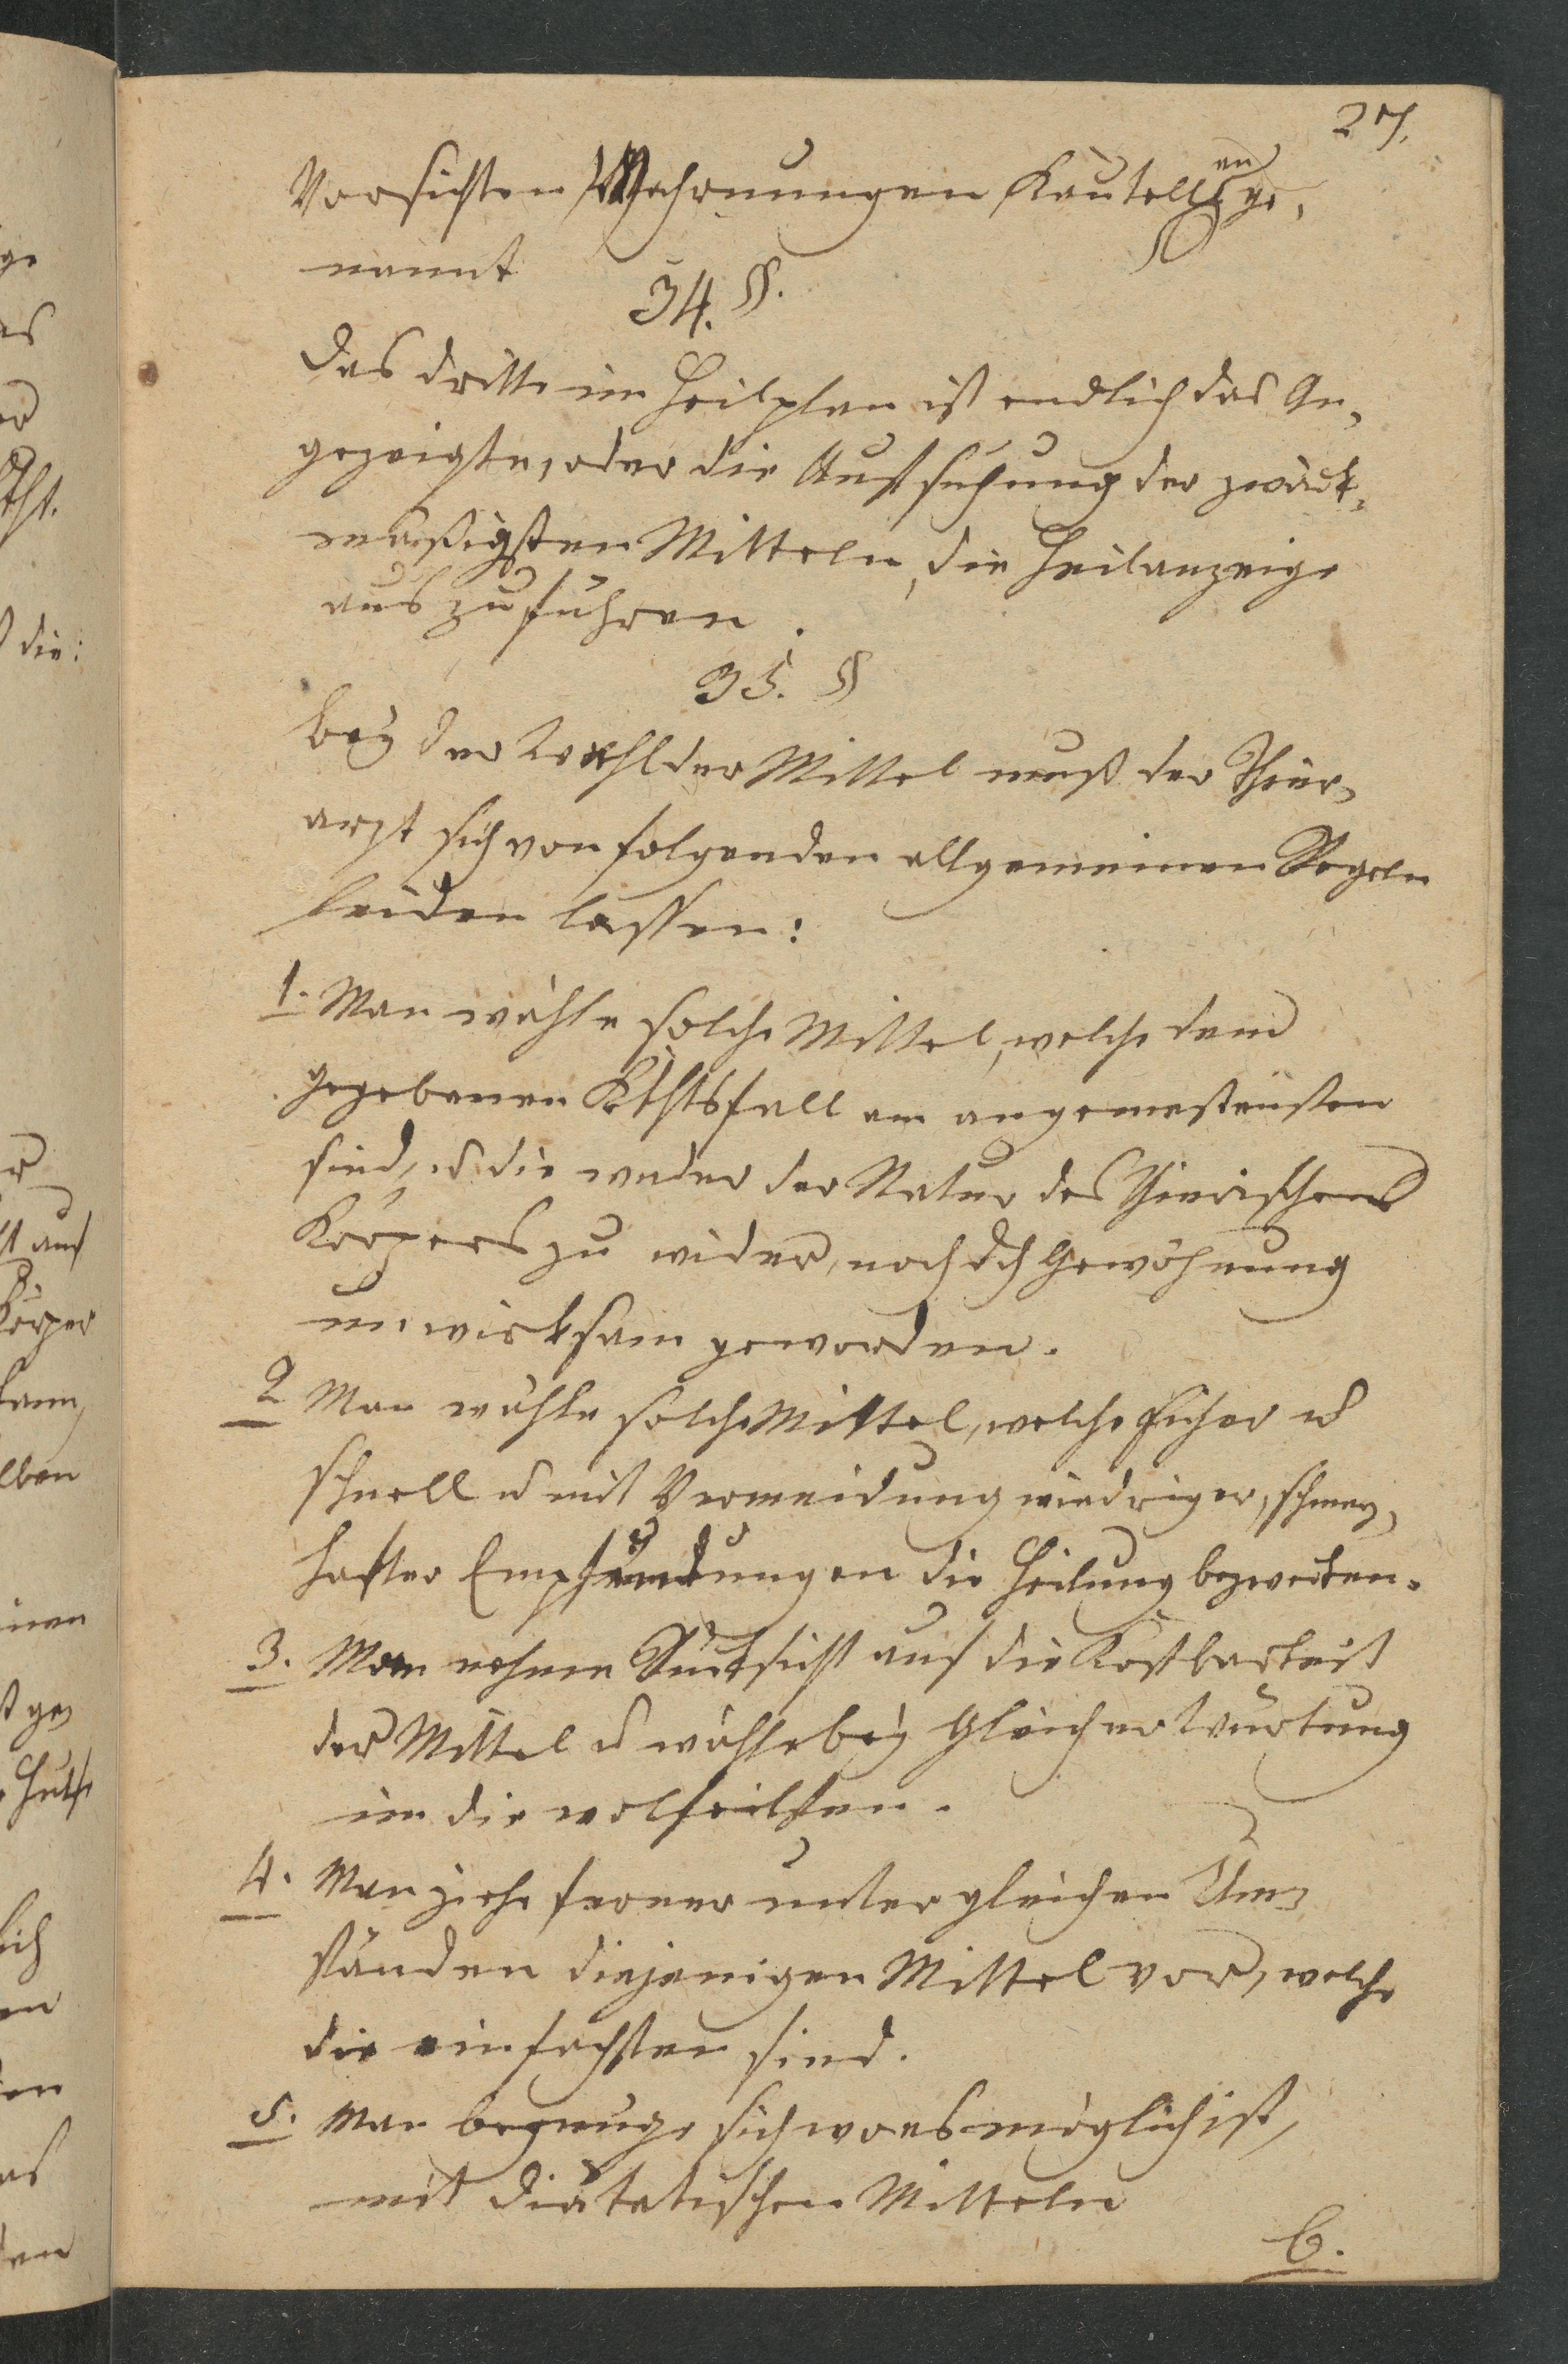 27.
Vorsichten Wahrnungen Kautellen ge,
nannt
34. §.
Das dritte im Heilplan ist endlich das An,
gezeigte, oder die Aufsuchung der zwäck,
mäßigsten Mitteln, die Heilanzeige
auszuführen.
35. §
bey der Wahl der Mittel muß der Thier,
arzt sich von folgenden allgemeinen Regeln
leiden lassen:
1. Man wähle solche Mittel, welche dem
gegebenen Kkhtsfall am angemesteusten
sind, u die weder der Natur des Thierischens
Körpers zu wider, noch dch Gewöhnung
unwirksam geworden.
2 Man wähle solche Mittel, welche sicher u
schnell u mit Vermeidung wiedriger, schmerz,
hafter Empfindungen die Heilung bezwecken.
3. Man nehme Rücksicht auf die Kostbarkeit
der Mittel u wähle bey Gleicher Würkung
im die wolfeilsten.
4. Man ziehe ferner unter gleichen Um,
ständen diejenigen Mittel vor, welche
die einfachsten sind.
5. Man begnuge sich wo es möglich ist,
mit diätetischen Mitteln
6.
ge
es
er
die:
auf
Körper
kann,
lben
inen
ge,
Hulfe
lich
en
en
as
den